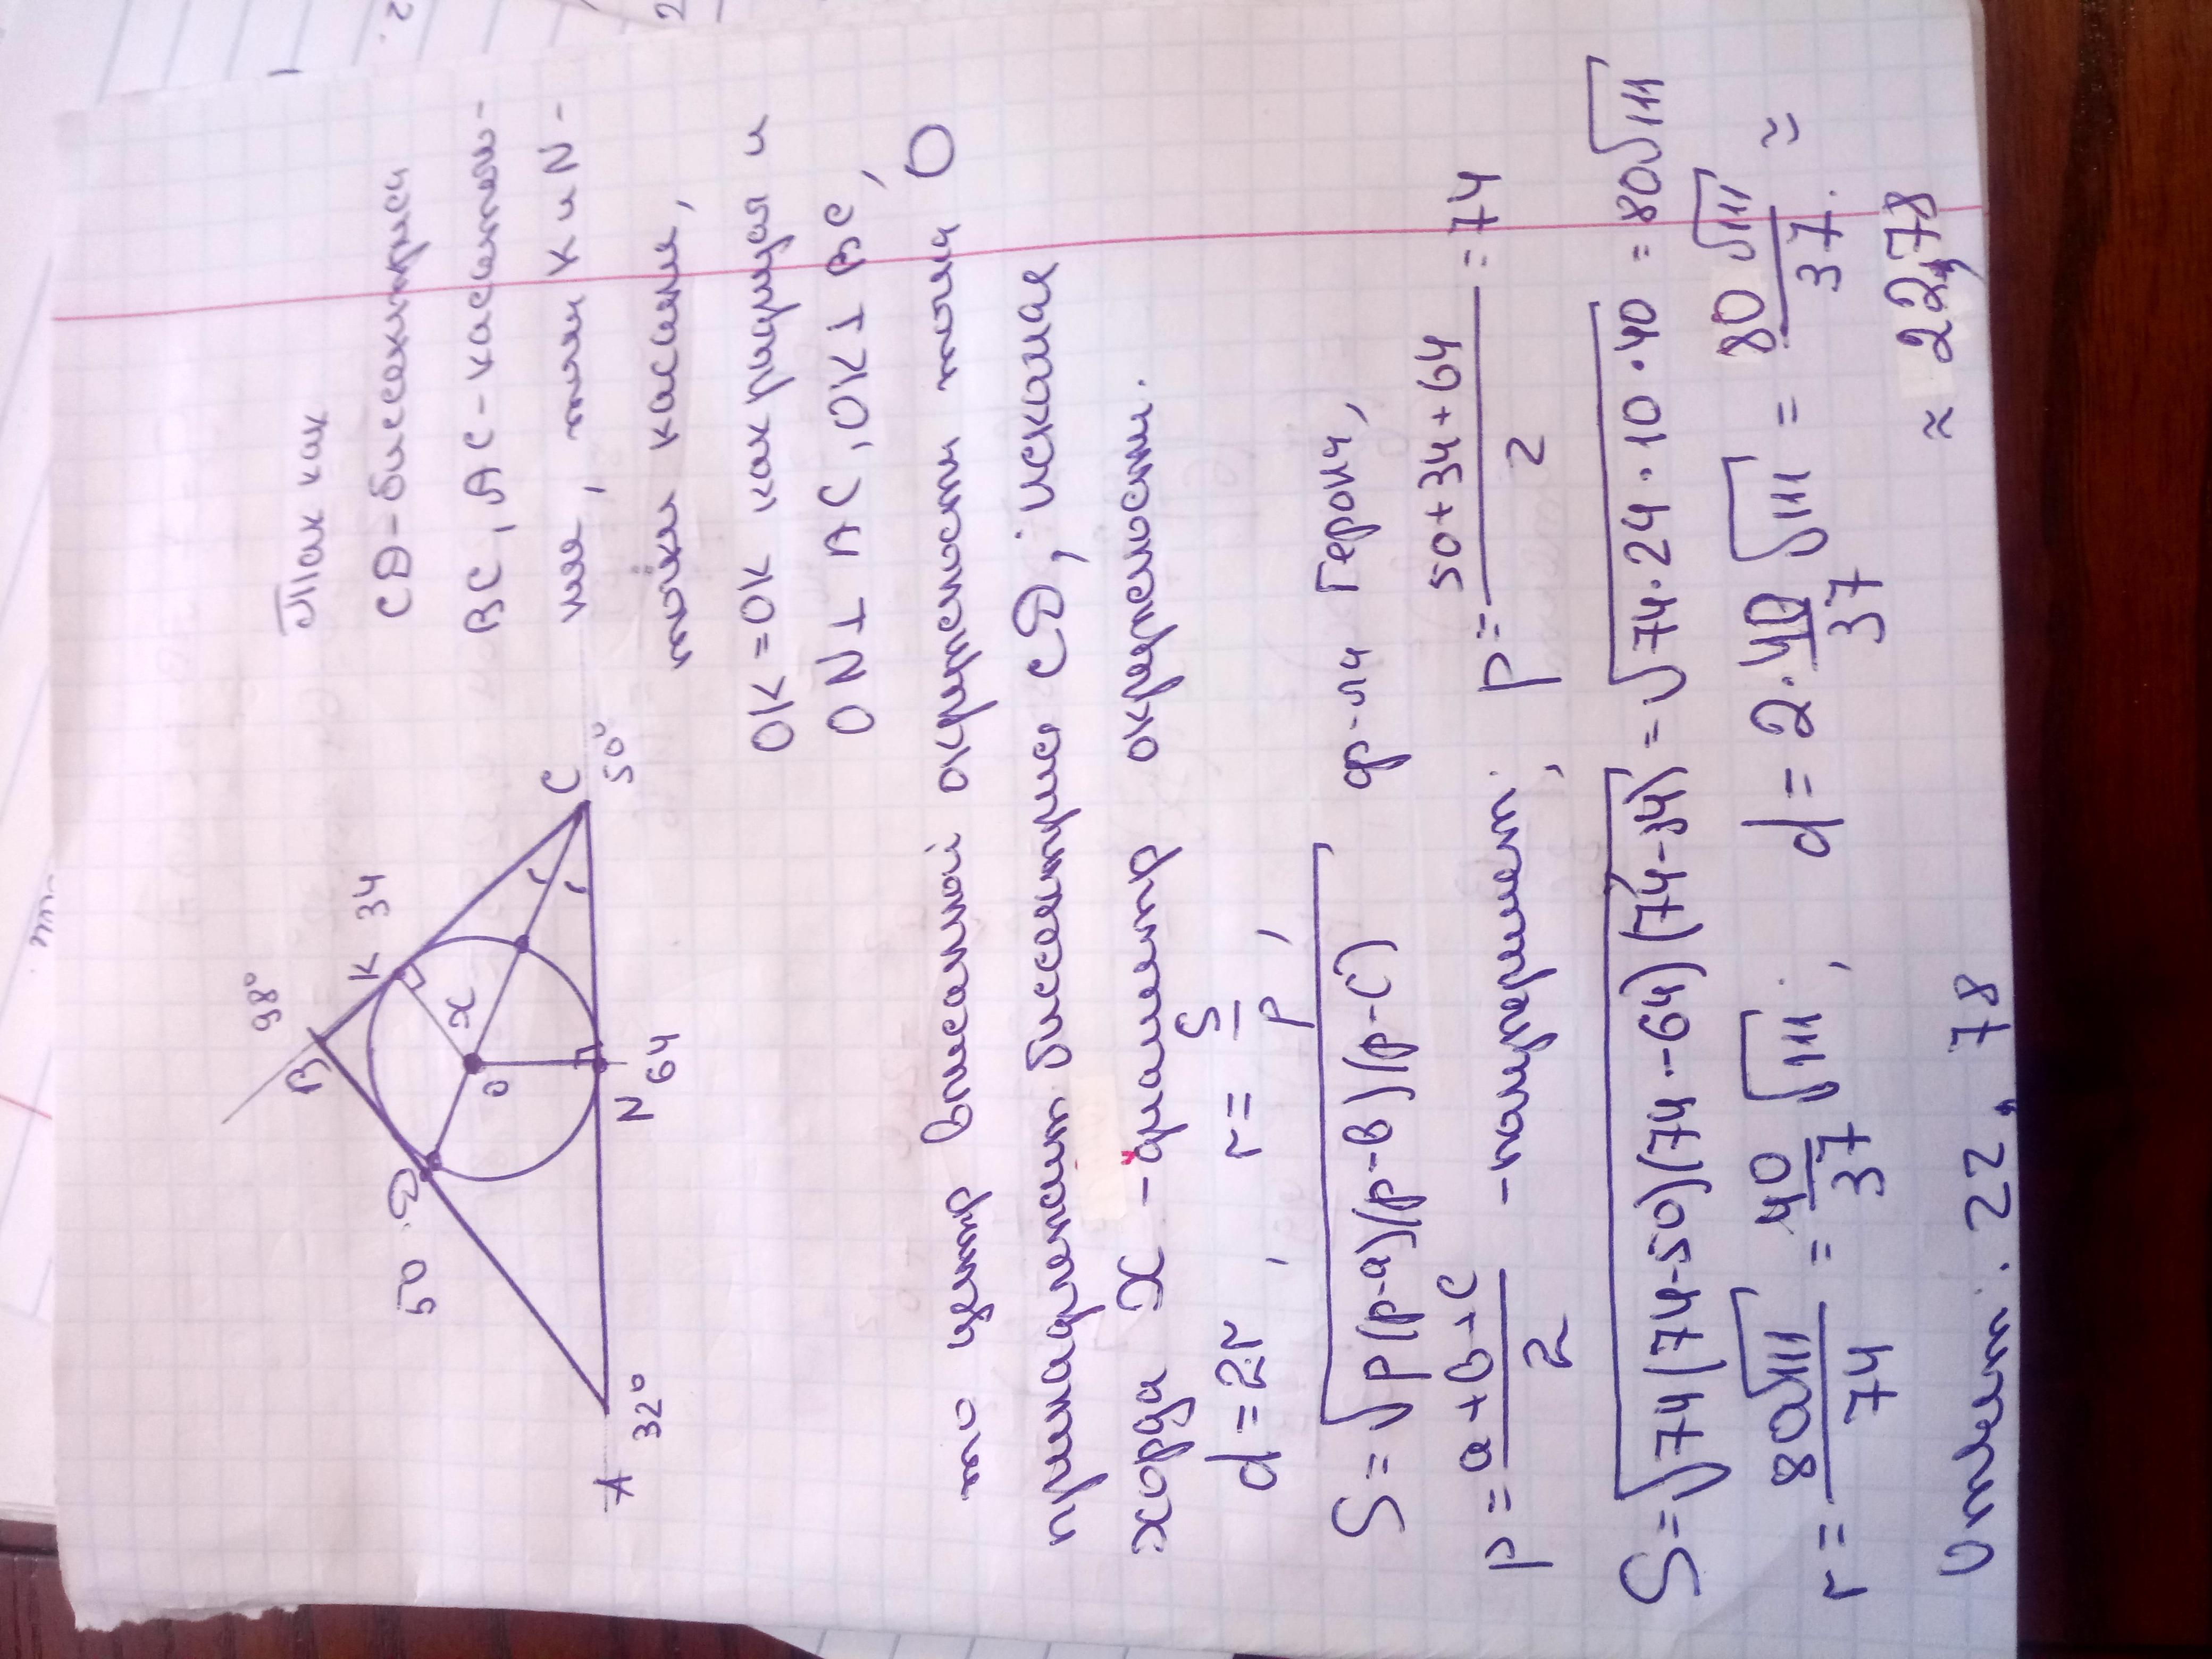 Так как
CD - биссектриса
BC, AC - касатель-
ные, точки K и N -
точки касания,
OK = OK как радиуся и
ON ⊥ AC, OK ⊥ BC,
98°
B
K 34
50 D
x
O
C
50°
A
32°
N
64
то центр вписанной окружности точка O
принадлежит биссектрисе CD, искомая
хорда x - диаметр окружности.
d = 2r, r = S/p,
S = √p(p-a)(p-b)(p-c) ф-ла Герона,
p = (a+b+c)/2 - полупериметр, p = (50+34+64)/2 = 74
S = √74(74-50)(74-64)(74-34) = √74·24·10·40 = 80√111
r = 80√111/74 = 40/37 √111, d = 2·40/37 √111 = 80√111/37 ≈
≈ 22,78
Ответ: 22,78